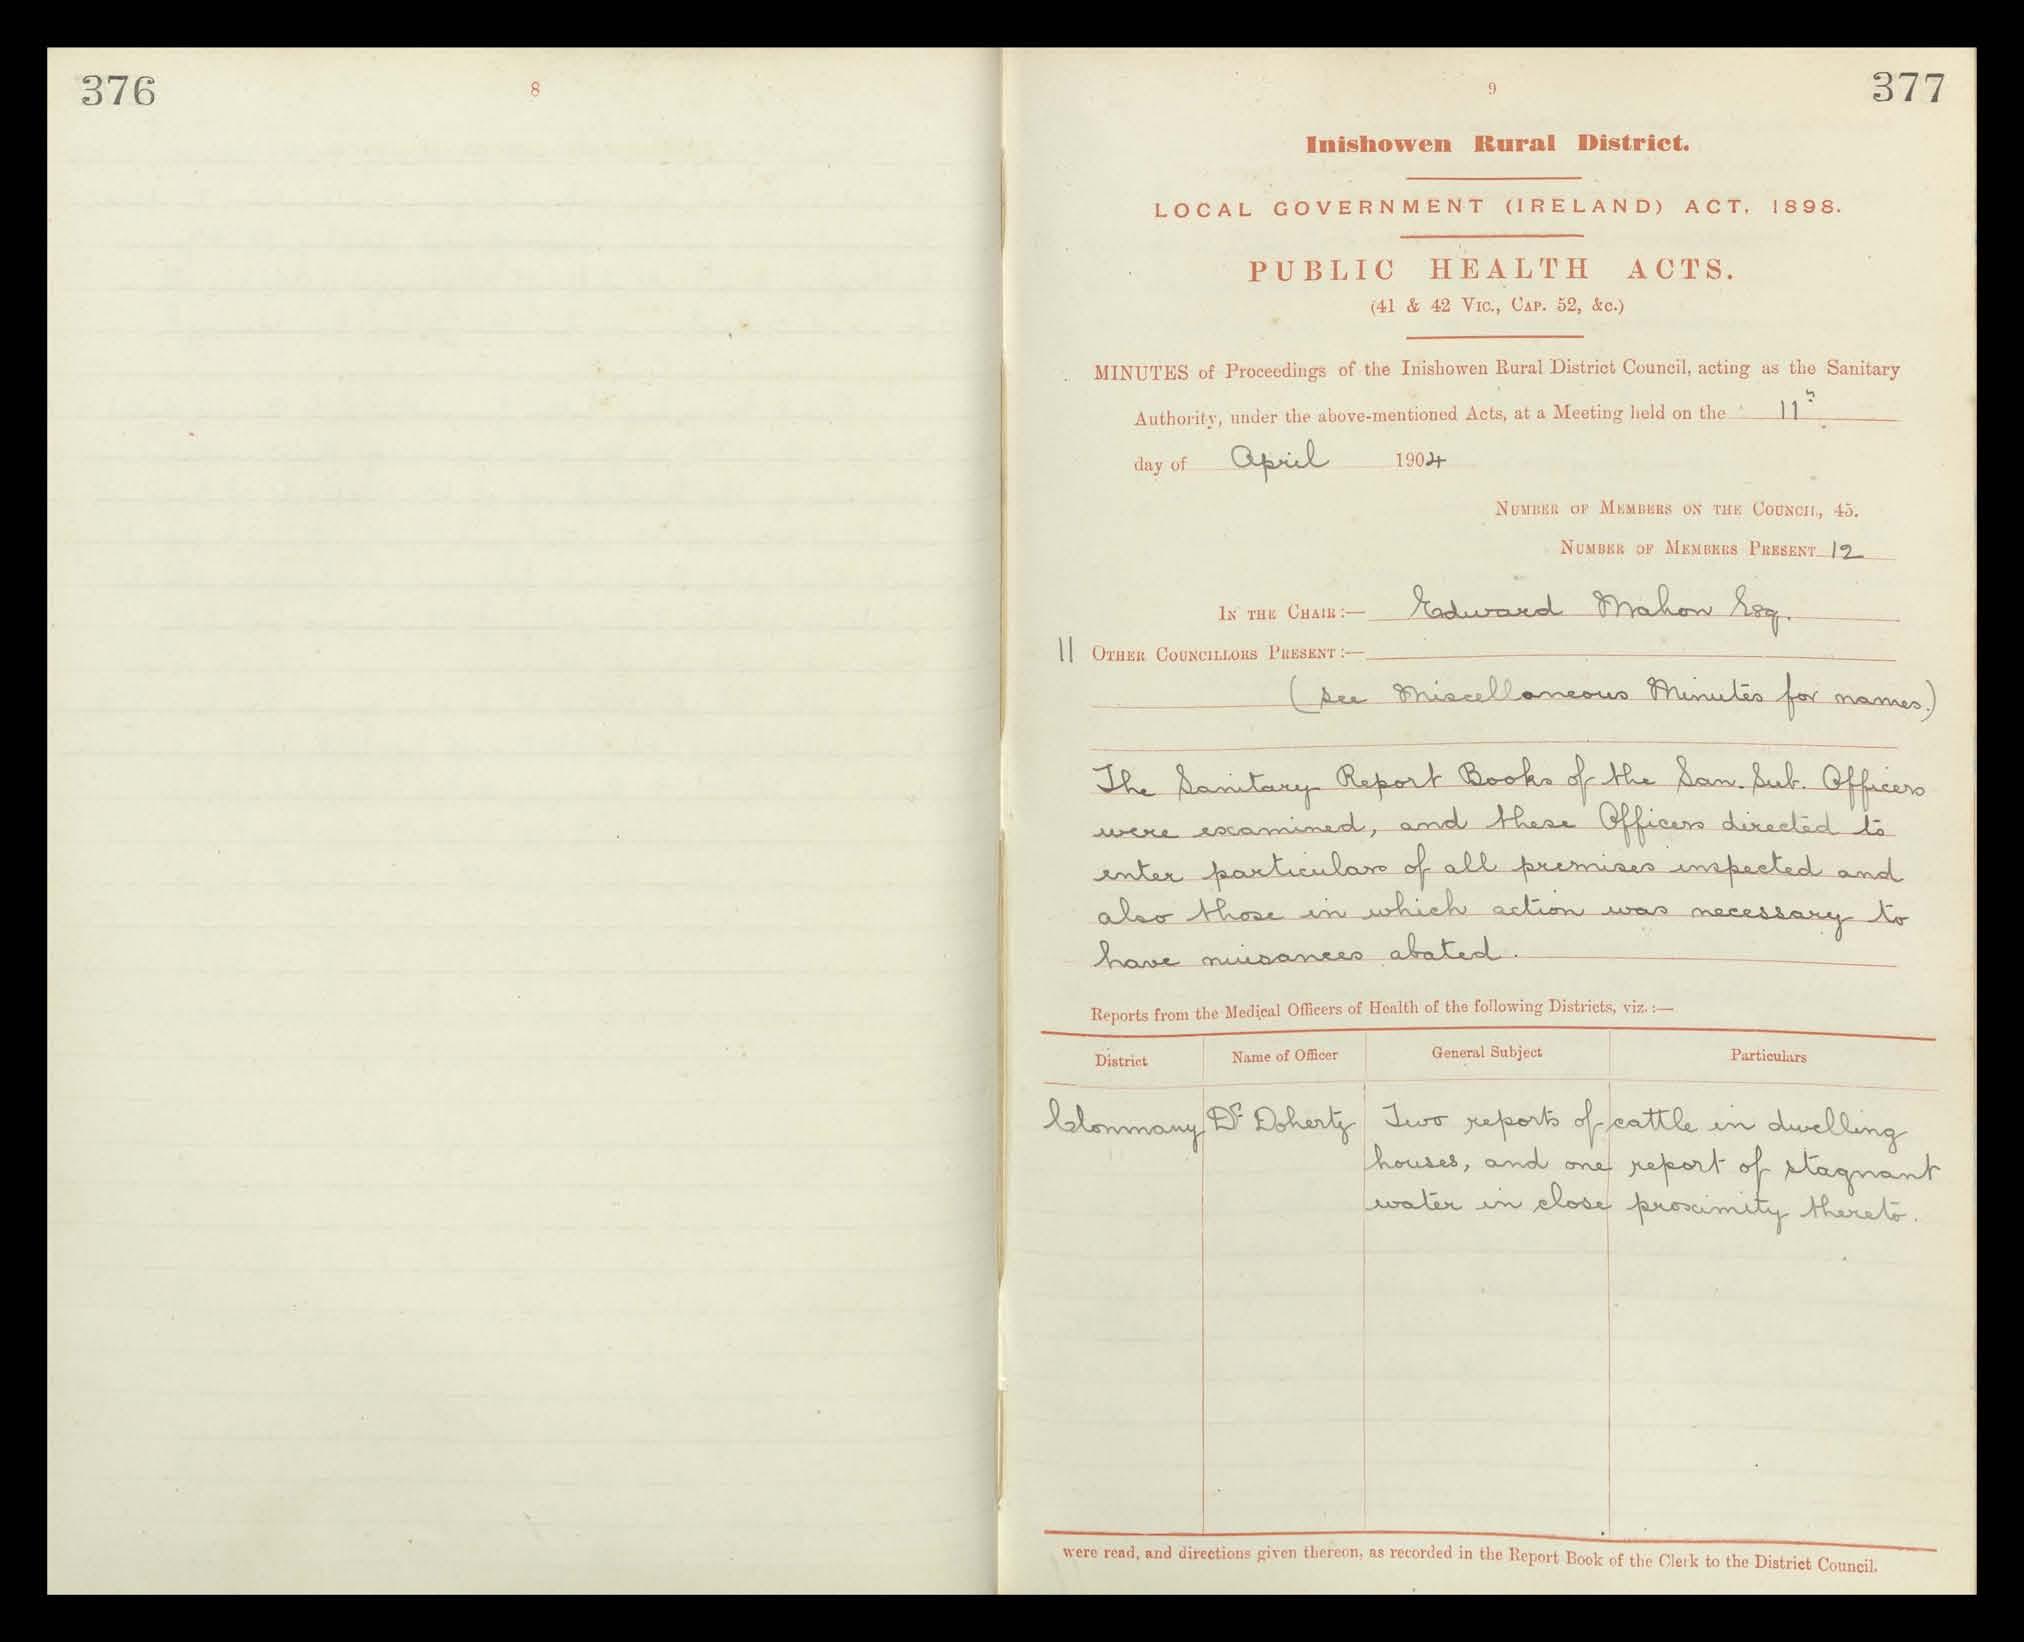 376
8
9
377
Inishowen Rural District.
LOCAL GOVERNMENT (IRELAND) ACT, 1898.
PUBLIC HEALTH ACTS.
(41 & 42 Vic., Cap. 52, &c.)
MINUTES of Proceedings of the Inishowen Rural District Council, acting as the Sanitary
Authority, under the above-mentioned Acts, at a Meeting held on the 11th
day of April 1904
Number of Members on the Council, 45.
Number of Members Present 12
In the Chair:— Edward Mahon Esq.
11 Other Councillors Present:—
(see Miscellaneous Minutes for names.)
The Sanitary Report Books of the San. Sub. Officers
were examined, and these Officers directed to
enter particulars of all premises inspected and
also those in which action was necessary to
have nuisances abated.
Reports from the Medical Officers of Health of the following Districts, viz.:—
District Name of Officer General Subject Particulars
Clonmany Dr Doherty Two reports of cattle in dwelling
houses, and one report of stagnant
water in close proximity thereto.
were read, and directions given thereon, as recorded in the Report Book of the Clerk to the District Council.